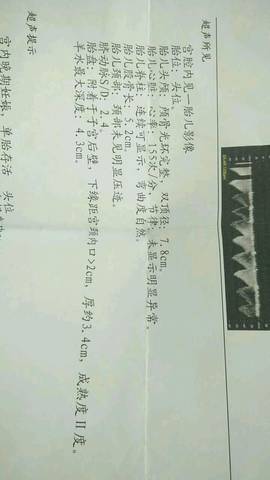 超声所见
宫腔内见一胎儿影像
胎位：头位。
胎儿头颅：颅骨光环完整，双顶径：7.8cm。
胎儿心脏：心率 次/分，节律：未显示明显异常。
胎儿脊柱：连续可显示，弯曲度自然。
胎儿股骨长：5.2cm。
胎儿颈部：颈部未见明显压迹。
脐动脉S/D：2.4。
胎盘：附着于子宫后壁，下缘距宫颈内口>2cm，厚约3.4cm，成熟度Ⅱ度。
羊水最大深度：4.3cm。
超声提示
宫内晚期妊娠，单胎存活，头位